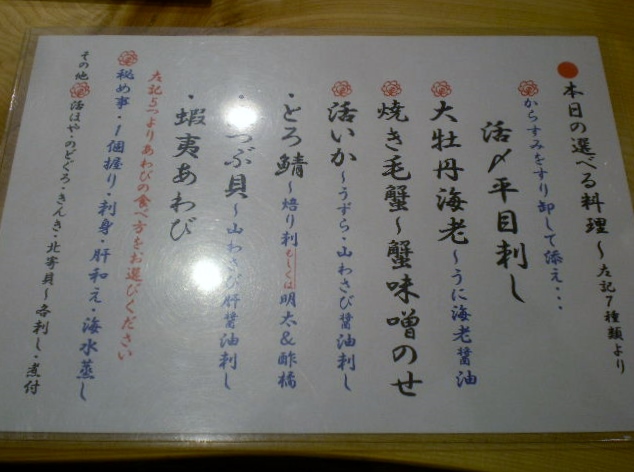 本日の選べる料理～左記7種類より
からすみをすり卸して添え・・・
活〆平目刺し
大牡丹海老～うに海老醤油
焼き毛蟹～蟹味噌のせ
活いか～うずら・山わさび醤油刺し
・とろ鯖～焙り刺もしくは明太&酢橘
つぶ貝～山わさび肝醤油刺し
・蝦夷あわび
左記5つよりあわびの食べ方をお選びください
秘め事・1個握り・刺身・肝和え・海水蒸し
その他 活ほや・のどぐろ・きんき・北寄貝～各刺し・煮付